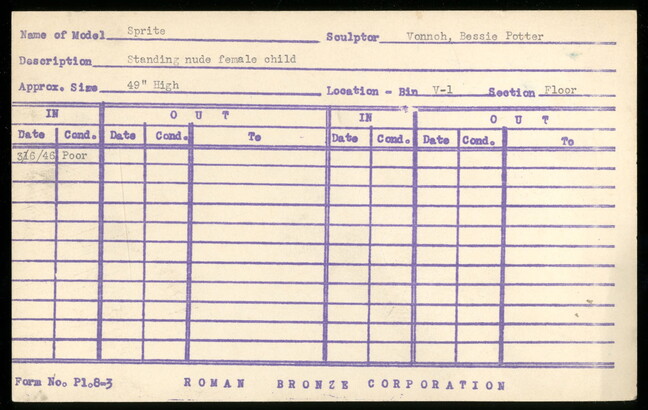 Name of Model Sprite Sculptor Vonnoh, Bessie Potter
Description Standing nude female child
Approx. Size 49" High Location - Bin V-1 Section Floor
IN OUT IN OUT
Date Cond. Date Cond. To Date Cond. Date Cond. To
3/6/46 Poor
Form No. P1.8-3 ROMAN BRONZE CORPORATION